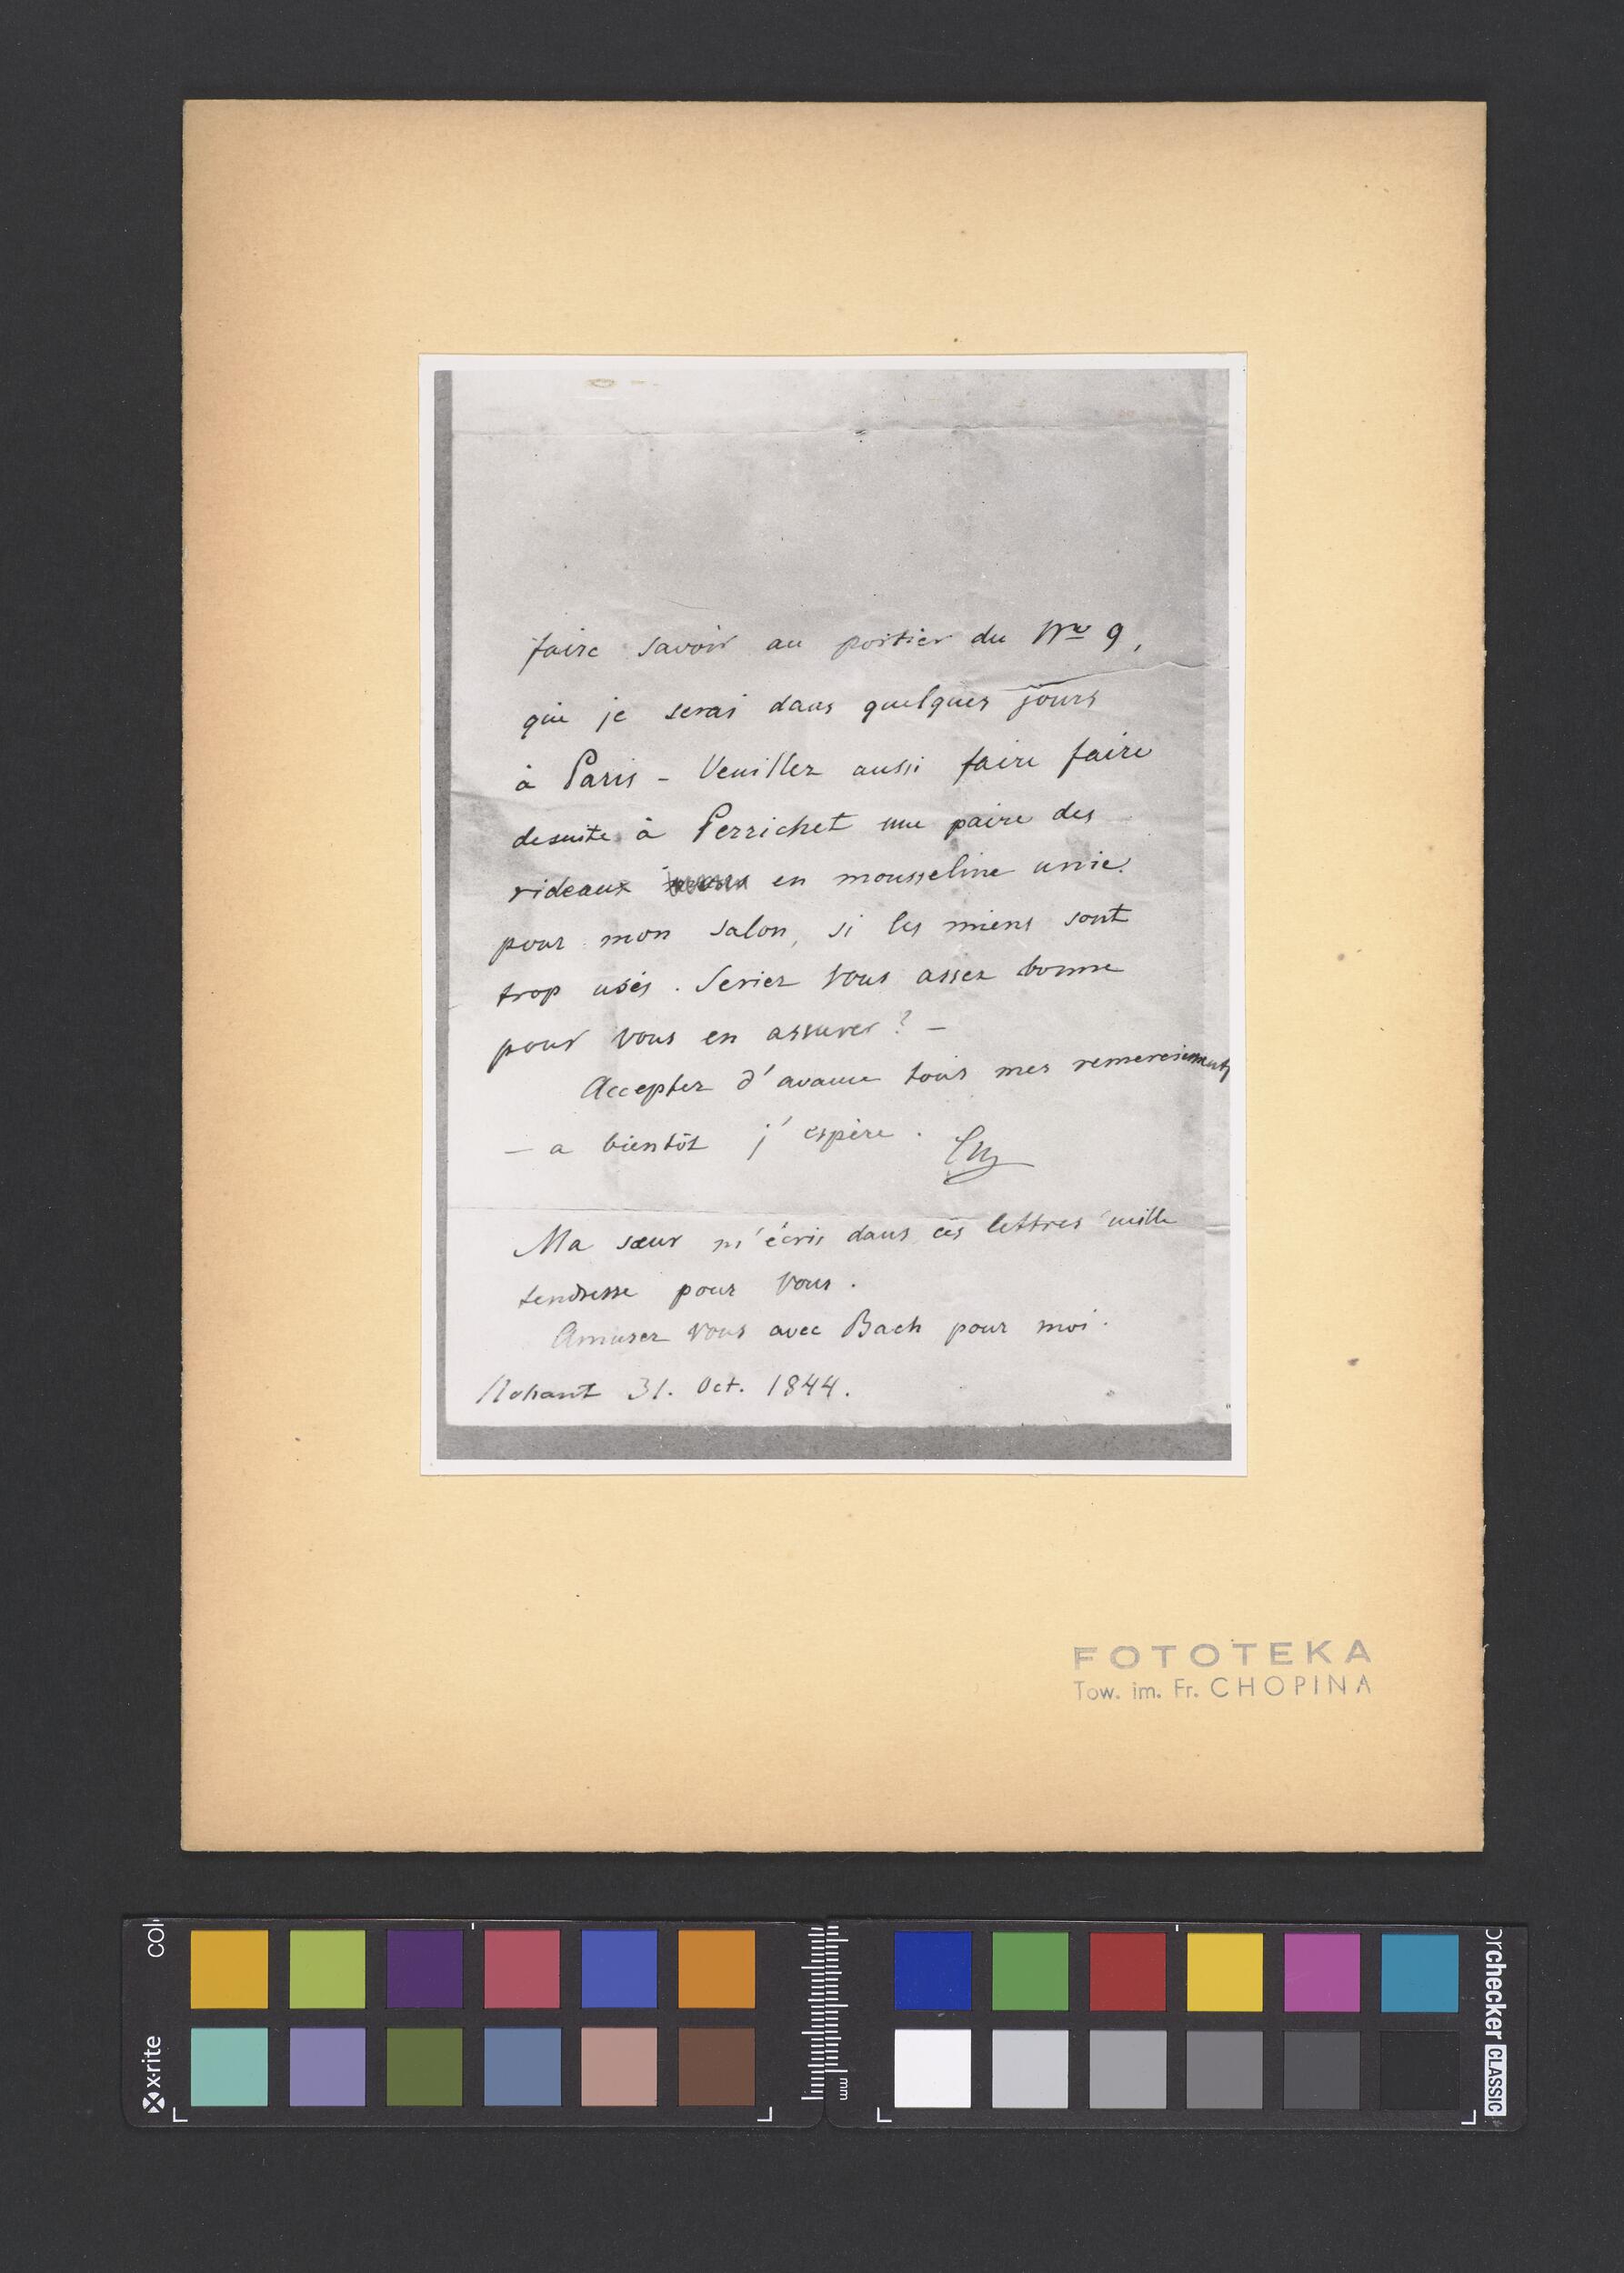 faire savoir au portier du Nro 9,
que je serai dans quelques jours
à Paris - Veuillez aussi faire faire
desuite à Perrichet une paire des
rideaux en mousseline unie
pour mon salon, si les miens sont
trop usés. Seriez vous assez bonne
pour vous en assurer? -
Acceptez d'avance tous mes remerciements
- a bientôt j'espère. Ch
Ma sœur m'écris dans ces lettres mille
tendresse pour vous.
Amusez vous avec Bach pour moi.
Nohant 31. Oct. 1844.
FOTOTEKA
Tow. im. Fr. CHOPINA
x-rite
col
mm
orchecker CLASSIC